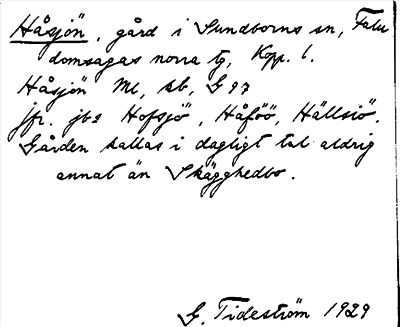 Håsjön, gård i Sundborns sn, Falu
domsagas norra tg, Kopp. l.
Håsjön Ml, sb, G 97
jfr. jb2 Hofsjö, Håföö, Hällsiö.
Gården kallas i dagligt tal aldrig
annat än Skägghedbo.
G. Tideström 1929